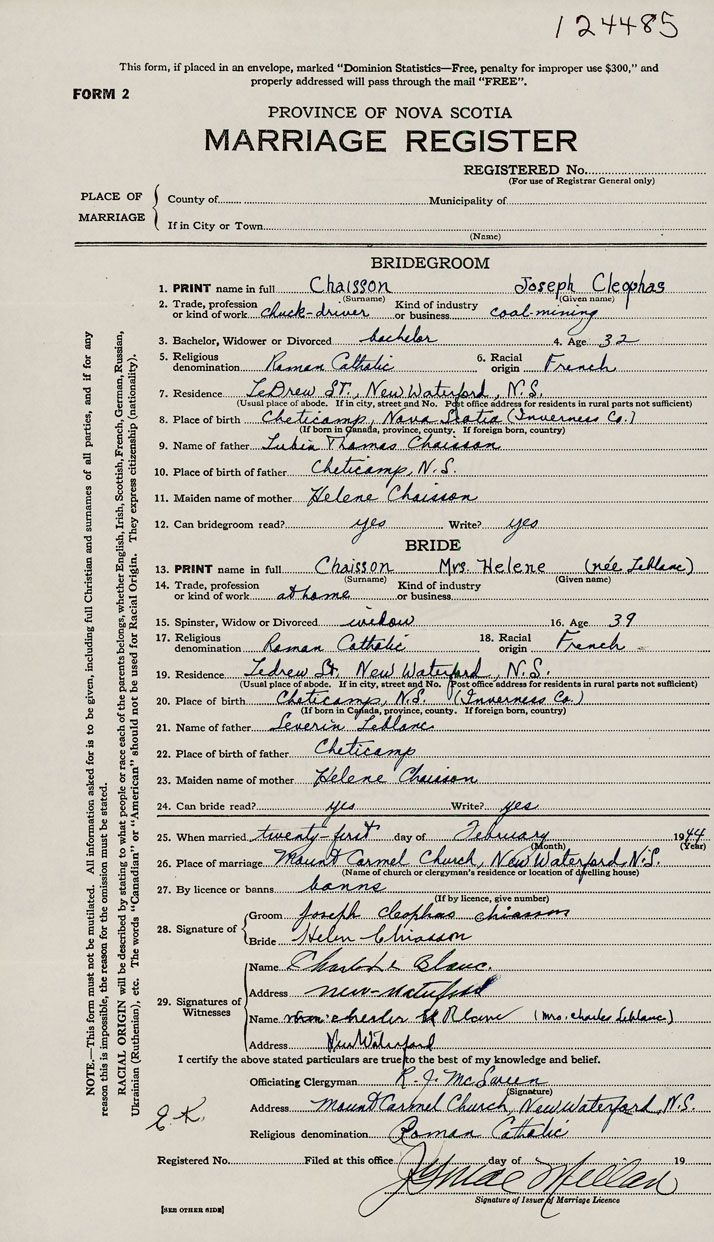 124485
This form, if placed in an envelope, marked "Dominion Statistics—Free, penalty for improper use $300," and
properly addressed will pass through the mail "FREE".
FORM 2
PROVINCE OF NOVA SCOTIA
MARRIAGE REGISTER
REGISTERED No.
(For use of Registrar General only)
PLACE OF MARRIAGE
County of Municipality of
If in City or Town
(Name)
BRIDEGROOM
1. PRINT name in full Chaisson Joseph Cleophas
(Surname) (Given name)
2. Trade, profession or kind of work chuck-driver Kind of industry or business coal-mining
3. Bachelor, Widower or Divorced bachelor 4. Age 32
5. Religious denomination Roman Catholic 6. Racial origin French
7. Residence LeDrew St., New Waterford, N.S.
(Usual place of abode. If in city, street and No. Post office address for residents in rural parts not sufficient)
8. Place of birth Cheticamp, Nova Scotia (Inverness Co.)
(If born in Canada, province, county. If foreign born, country)
9. Name of father Thomas Chaisson
10. Place of birth of father Cheticamp, N.S.
11. Maiden name of mother Helene Chaisson
12. Can bridegroom read? yes Write? yes
BRIDE
13. PRINT name in full Chaisson Mrs. Helene (née Leblanc)
(Surname) (Given name)
14. Trade, profession or kind of work at home Kind of industry or business
15. Spinster, Widow or Divorced widow 16. Age 39
17. Religious denomination Roman Catholic 18. Racial origin French
19. Residence Ledrew St. New Waterford, N.S.
(Usual place of abode. If in city, street and No. Post office address for residents in rural parts not sufficient)
20. Place of birth Cheticamp, N.S. (Inverness Co.)
(If born in Canada, province, county. If foreign born, country)
21. Name of father Severin Leblanc
22. Place of birth of father Cheticamp
23. Maiden name of mother Helene Chaisson
24. Can bride read? yes Write? yes
25. When married twenty-first day of February 1944
(Month) (Year)
26. Place of marriage Mount Carmel Church, New Waterford, N.S.
(Name of church or clergyman's residence or location of dwelling house)
27. By licence or banns banns
(If by licence, give number)
28. Signature of
Groom Joseph Cleophas Chiasson
Bride Helen Chiasson
29. Signatures of Witnesses
Name Charle Le Blanc.
Address new-waterford
Name (Mrs. Charles Leblanc)
Address New Waterford
I certify the above stated particulars are true to the best of my knowledge and belief.
Officiating Clergyman R. J. McSween
(Signature)
Address Mount Carmel Church, New Waterford, N.S.
Religious denomination Roman Catholic
E.K.
Registered No. Filed at this office day of 19
Signature of Issuer of Marriage Licence
[SEE OTHER SIDE]
NOTE.—This form must not be mutilated. All information asked for is to be given, including full Christian and surnames of all parties, and if for any
reason this is impossible, the reason for the omission must be stated.
RACIAL ORIGIN will be described by stating to what people or race each of the parents belongs, whether English, Irish, Scottish, French, German, Russian,
Ukrainian (Ruthenian), etc. The words "Canadian" or "American" should not be used for Racial Origin. They express citizenship (nationality).